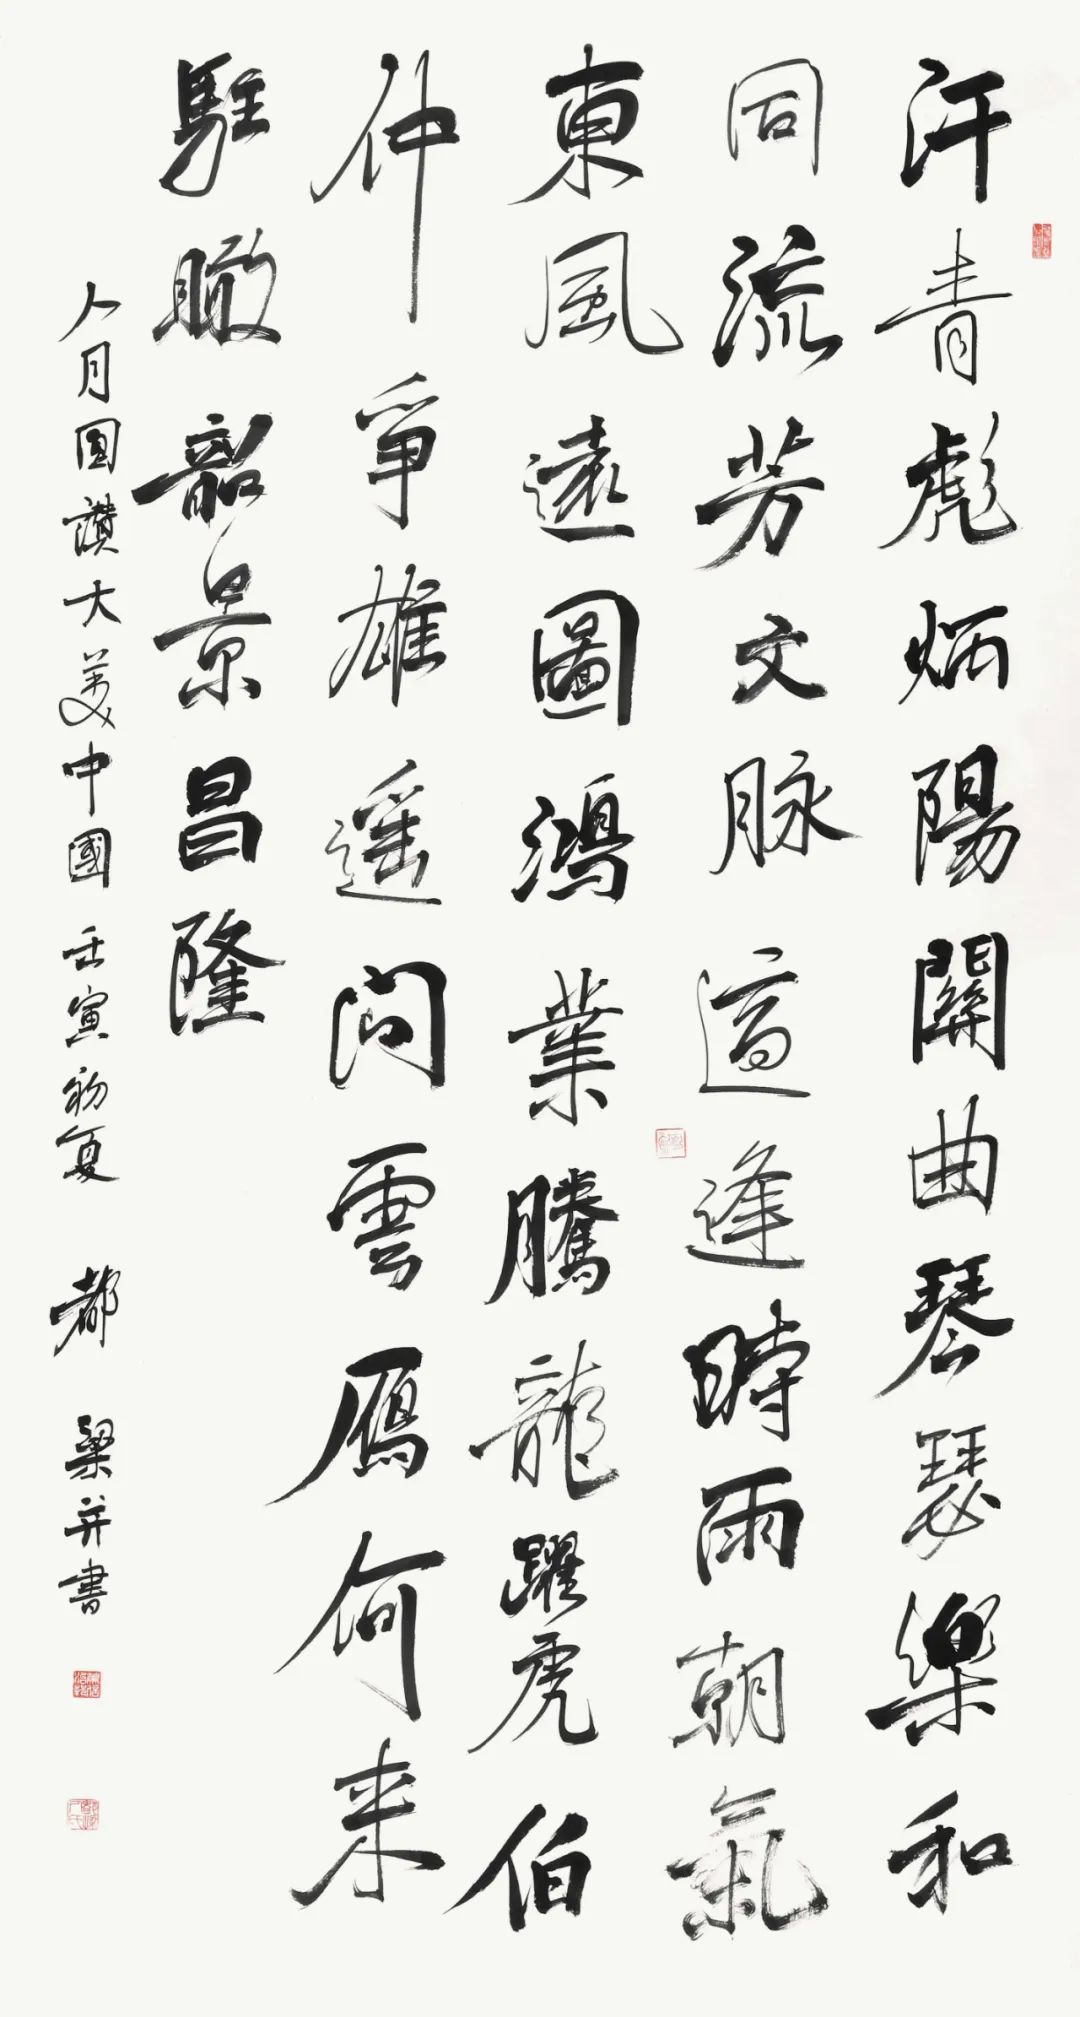 汗青彪炳陽關曲琴瑟樂和
同流芳文脉適逢時雨朝氣
東風遠圖鴻業騰龍躍虎伯
仲爭雄遥問雲鴈何来
駐瞰韶景昌隆
人月圓讃大美中國 壬寅初夏 都 梁并書